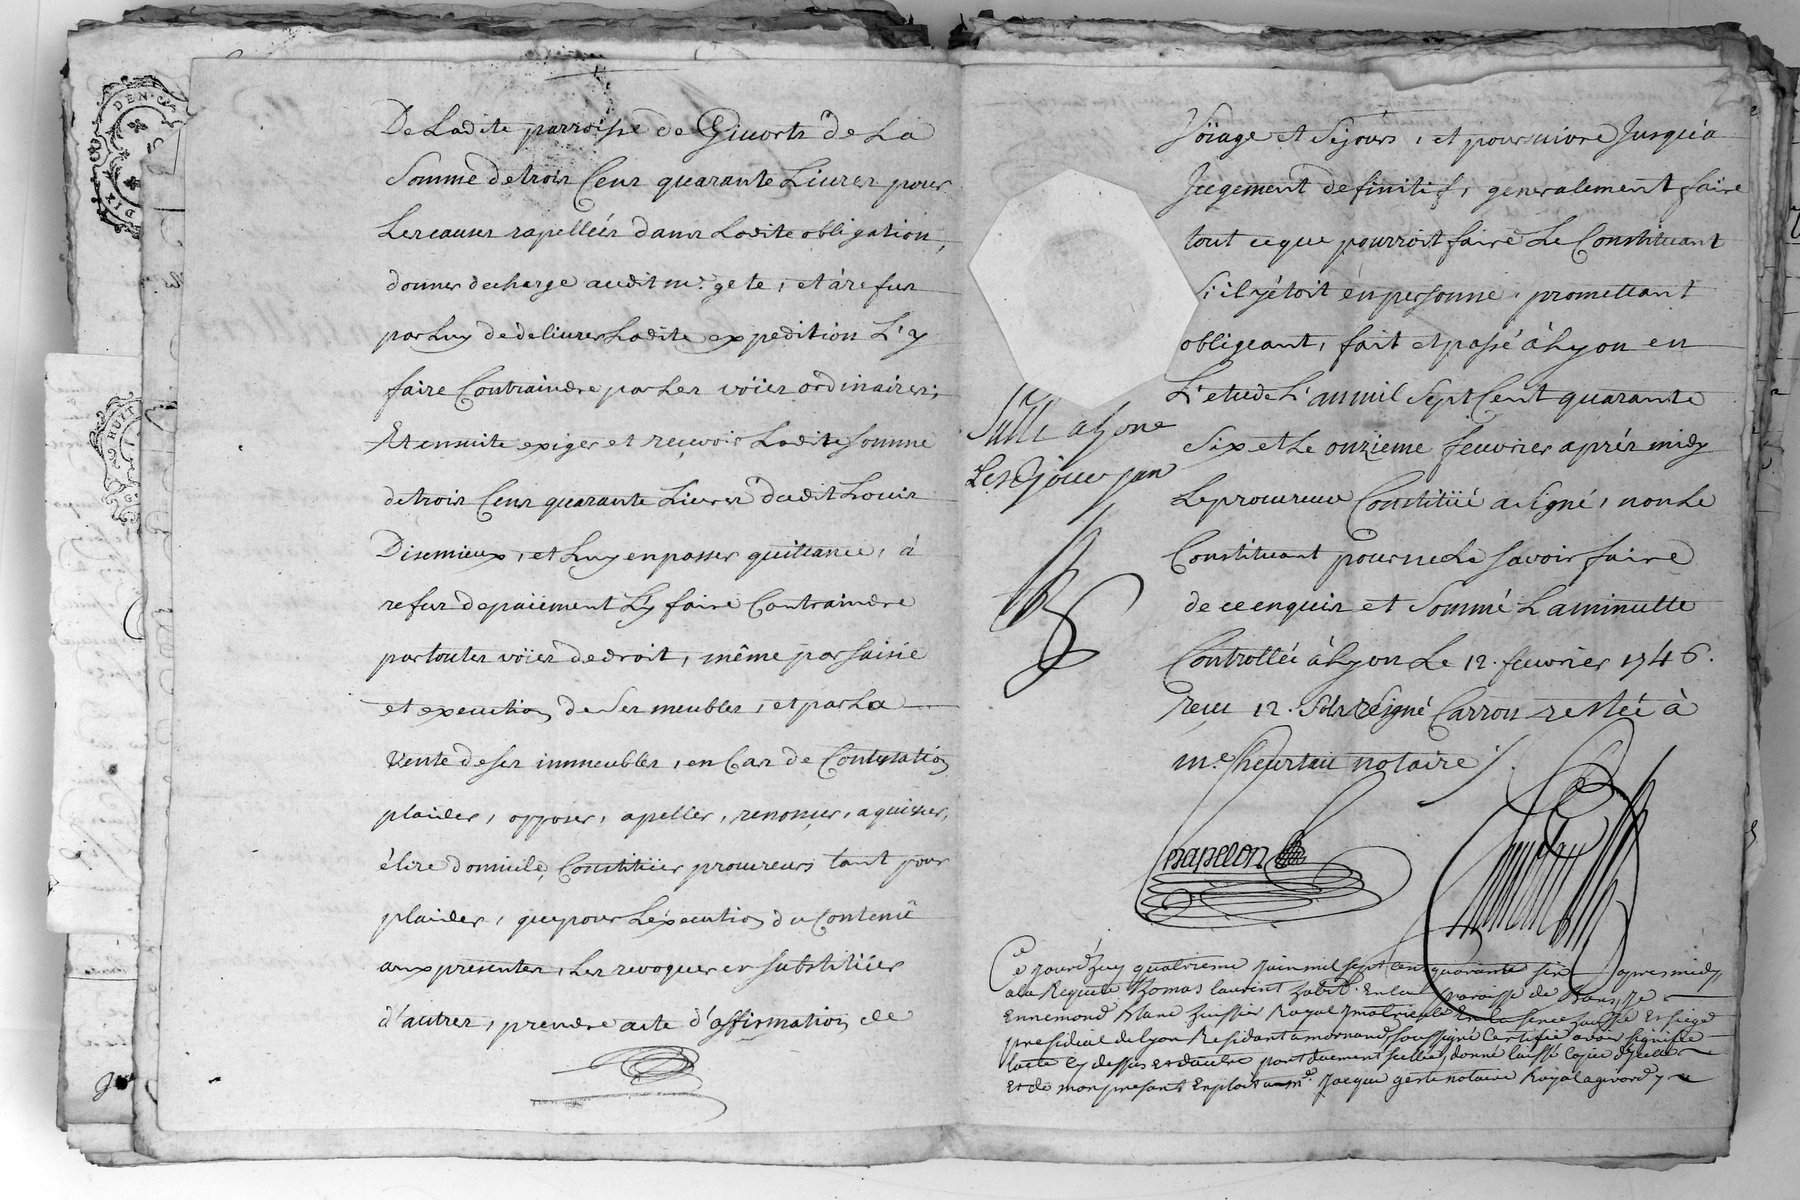 De Ladite parroisse de Givorts de La
Somme de trois Cens quarante Livres pour
Les causes rapellées dans Ladite obligation,
donner decharge audit me. gete, et à refus
par Luy de delivrer Ladite expedition L'y
faire Contraindre par Les voïies ordinaires;
Et ensuite exiger et reçevoir Ladite somme
de trois Cens quarante Livres dudit Louis
Disemieux, et Luy en passer quittance, à
refus de païement L'y faire Contraindre
par toutes voïes de droit, même par saisie
et execution de Ses meubles, et par La
Vente de ses immeubles, en Cas de Contestation
plaider, opposer, apeller, renoncer, aquiser,
élire domicile, Constitüer procureurs tant pour
plaider, que pour L'éxecution du Contenû
aux presentes, Les revoquer en substitüer
d'autres, prendre acte d'affirmation de
Vöiage et Séjours, et poursuivre Jusqu'a
Jugement definitif, generalement faire
tout ce que pourroit faire Le Constituant
S'il y étoit en personne, promettant
obligeant, fait et passé à Lyon en
L'etude L'an mil Sept Cent quarante
Six et Le onzieme fevrier aprés midy
Le procureur Constitüé a Signé, non Le
Constituant pour ne Le savoir faire
de ce enquis et Sommé La minutte
Controllée à Lyon Le 12. fevrier 1746.
Reçu 12. Sols Signé Carron restée à
me. Cheurtau notaire
Sçellé a Lyon
Les Jour
papelon
Ce Jourd'huy quatrieme Juin mil sept cens quarante six apres midy
a la Requete thomas laurent habit. en la parroisse de Bans, Je
Ennemond Blanc huissier Royal Immatricule En la Senechaussée Et siege
presidial de lyon Residant a mornand soussigné Certifie avoir signifie
lacte Cy dessus et dautre part duement scellée, donné laissé Copie d'Icelle
Et de mon present Exploit a me. Jacque geste notaire Royal a givord y